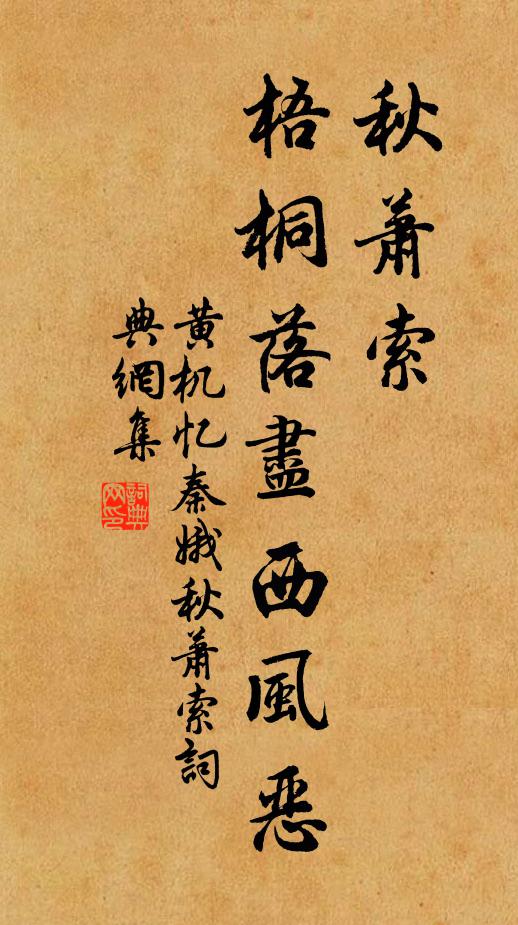 秋蕭索
梧桐落盡西風恶
黄机忆秦娥秋蕭索詞
典網集
詞典
网印